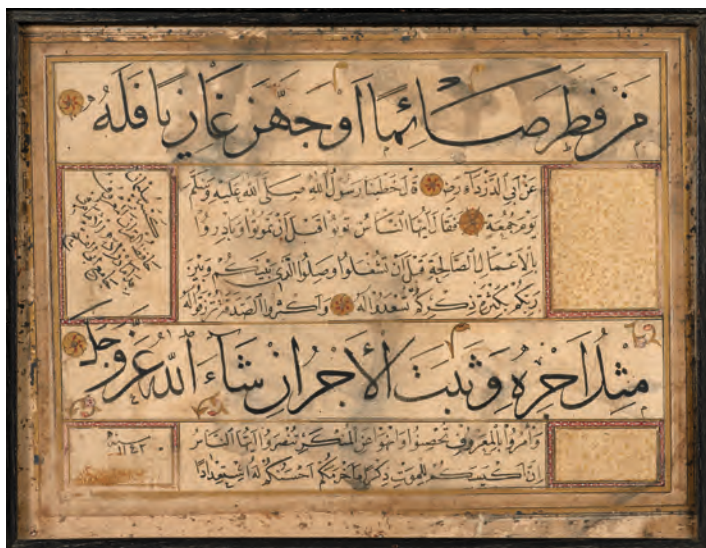 مَنْ فَطَّرَ صَائِمًا اَوْ جَهَّزَ غَازِيًا فَلَهُ
عن ابي الدرداء رض قال خطبنا رسول الله صلى الله عليه وسلم
يوم جمعة فقال يا ايها الناس توبوا قبل ان تموتوا وبادروا
بالاعمال الصالحة قبل ان تشغلوا وصلوا الذي بينكم وبين
ربكم بكثرة ذكركم تسعدوا له واكثروا الصدقة ترزقوا له
مِثْلُ اَجْرِهِ وَثَبَتَ الْاَجْرُ اِنْ شَاءَ اللهُ عَزَّ وَجَلَّ
وأمروا بالمعروف تخصبوا وانهوا عن المنكر تنصروا ايها الناس
ان اكيسكم للموت ذكرا واحزمكم احسنكم له استعدادا
سنة
١١٤٢